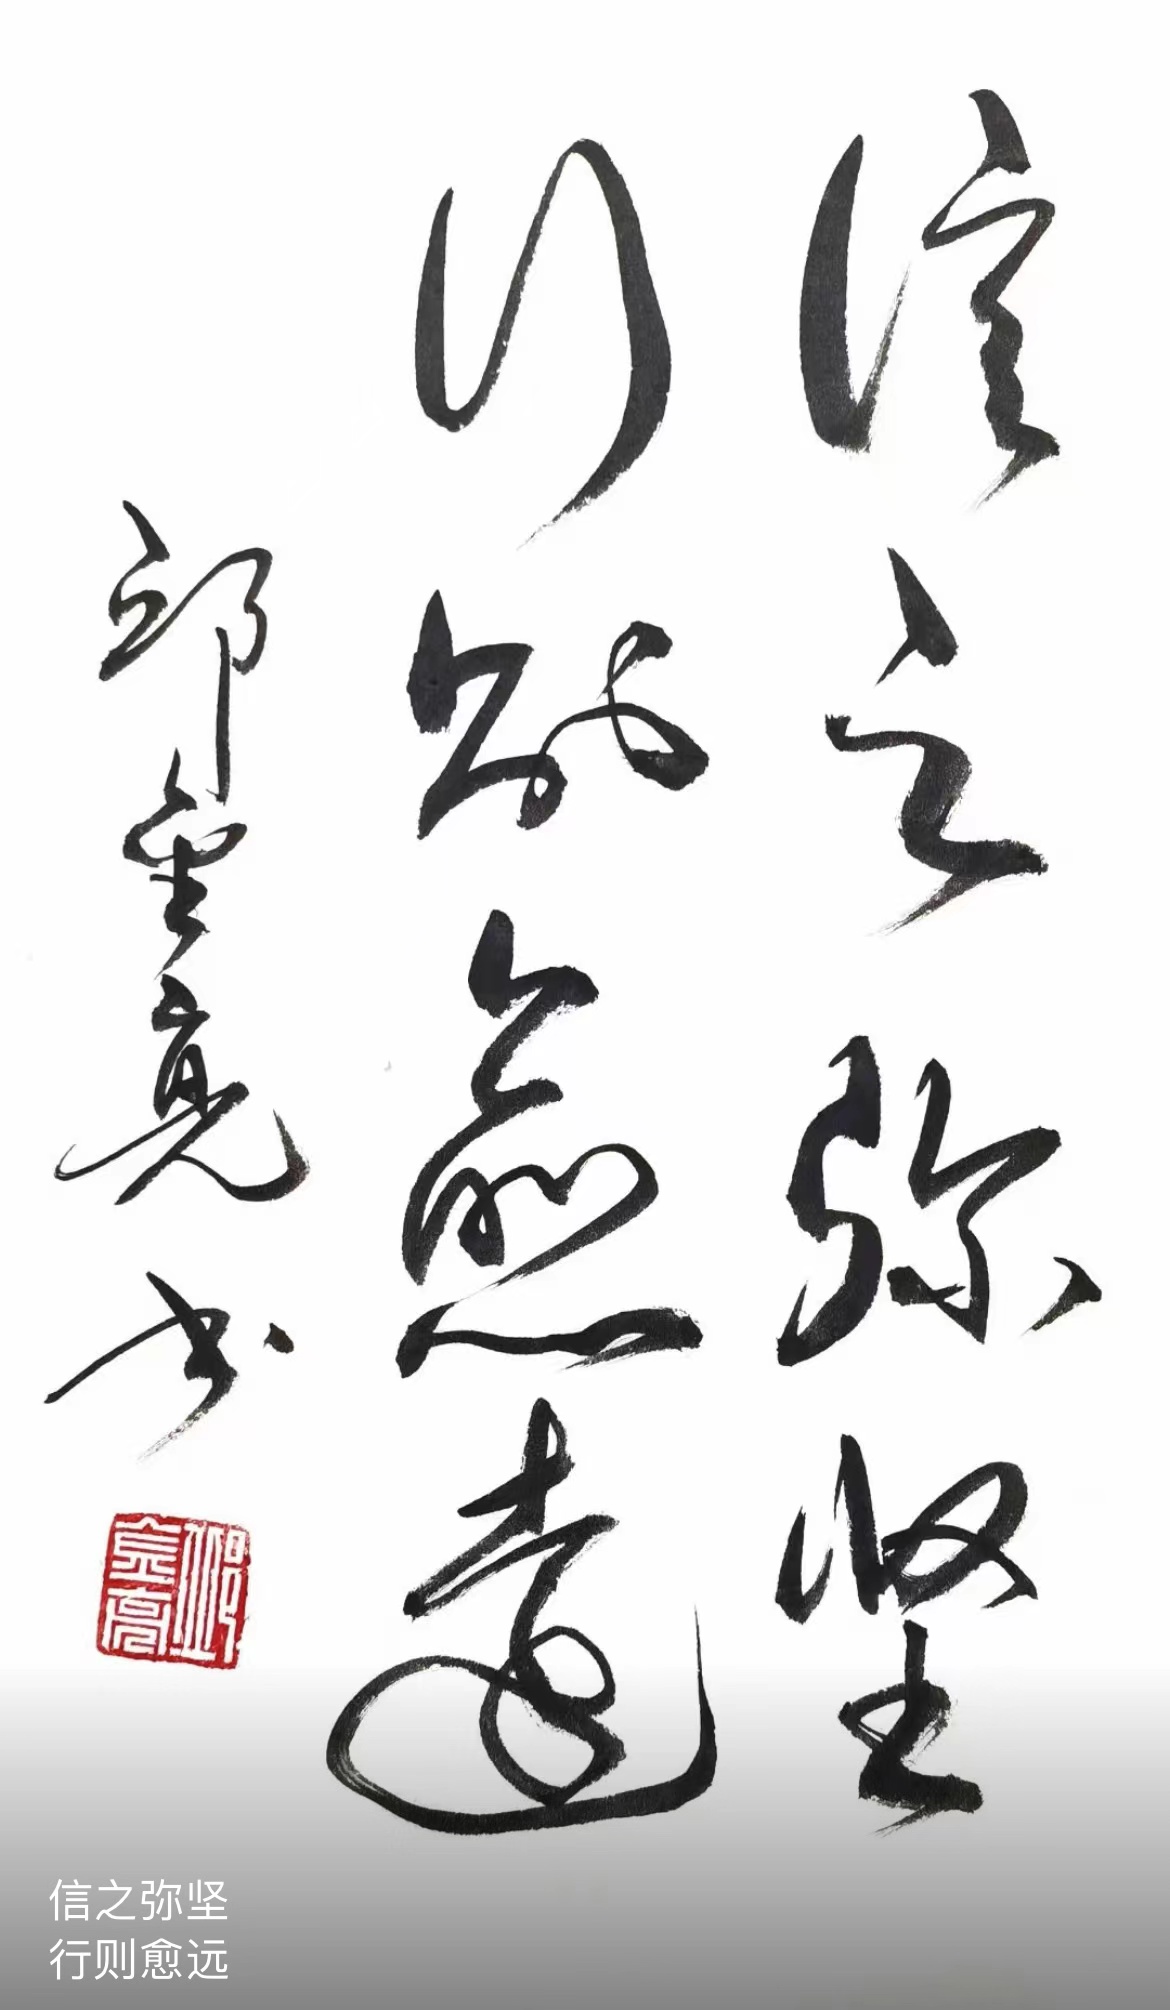 信之弥坚
行则愈远
邱金亮书
信之弥坚
行则愈远